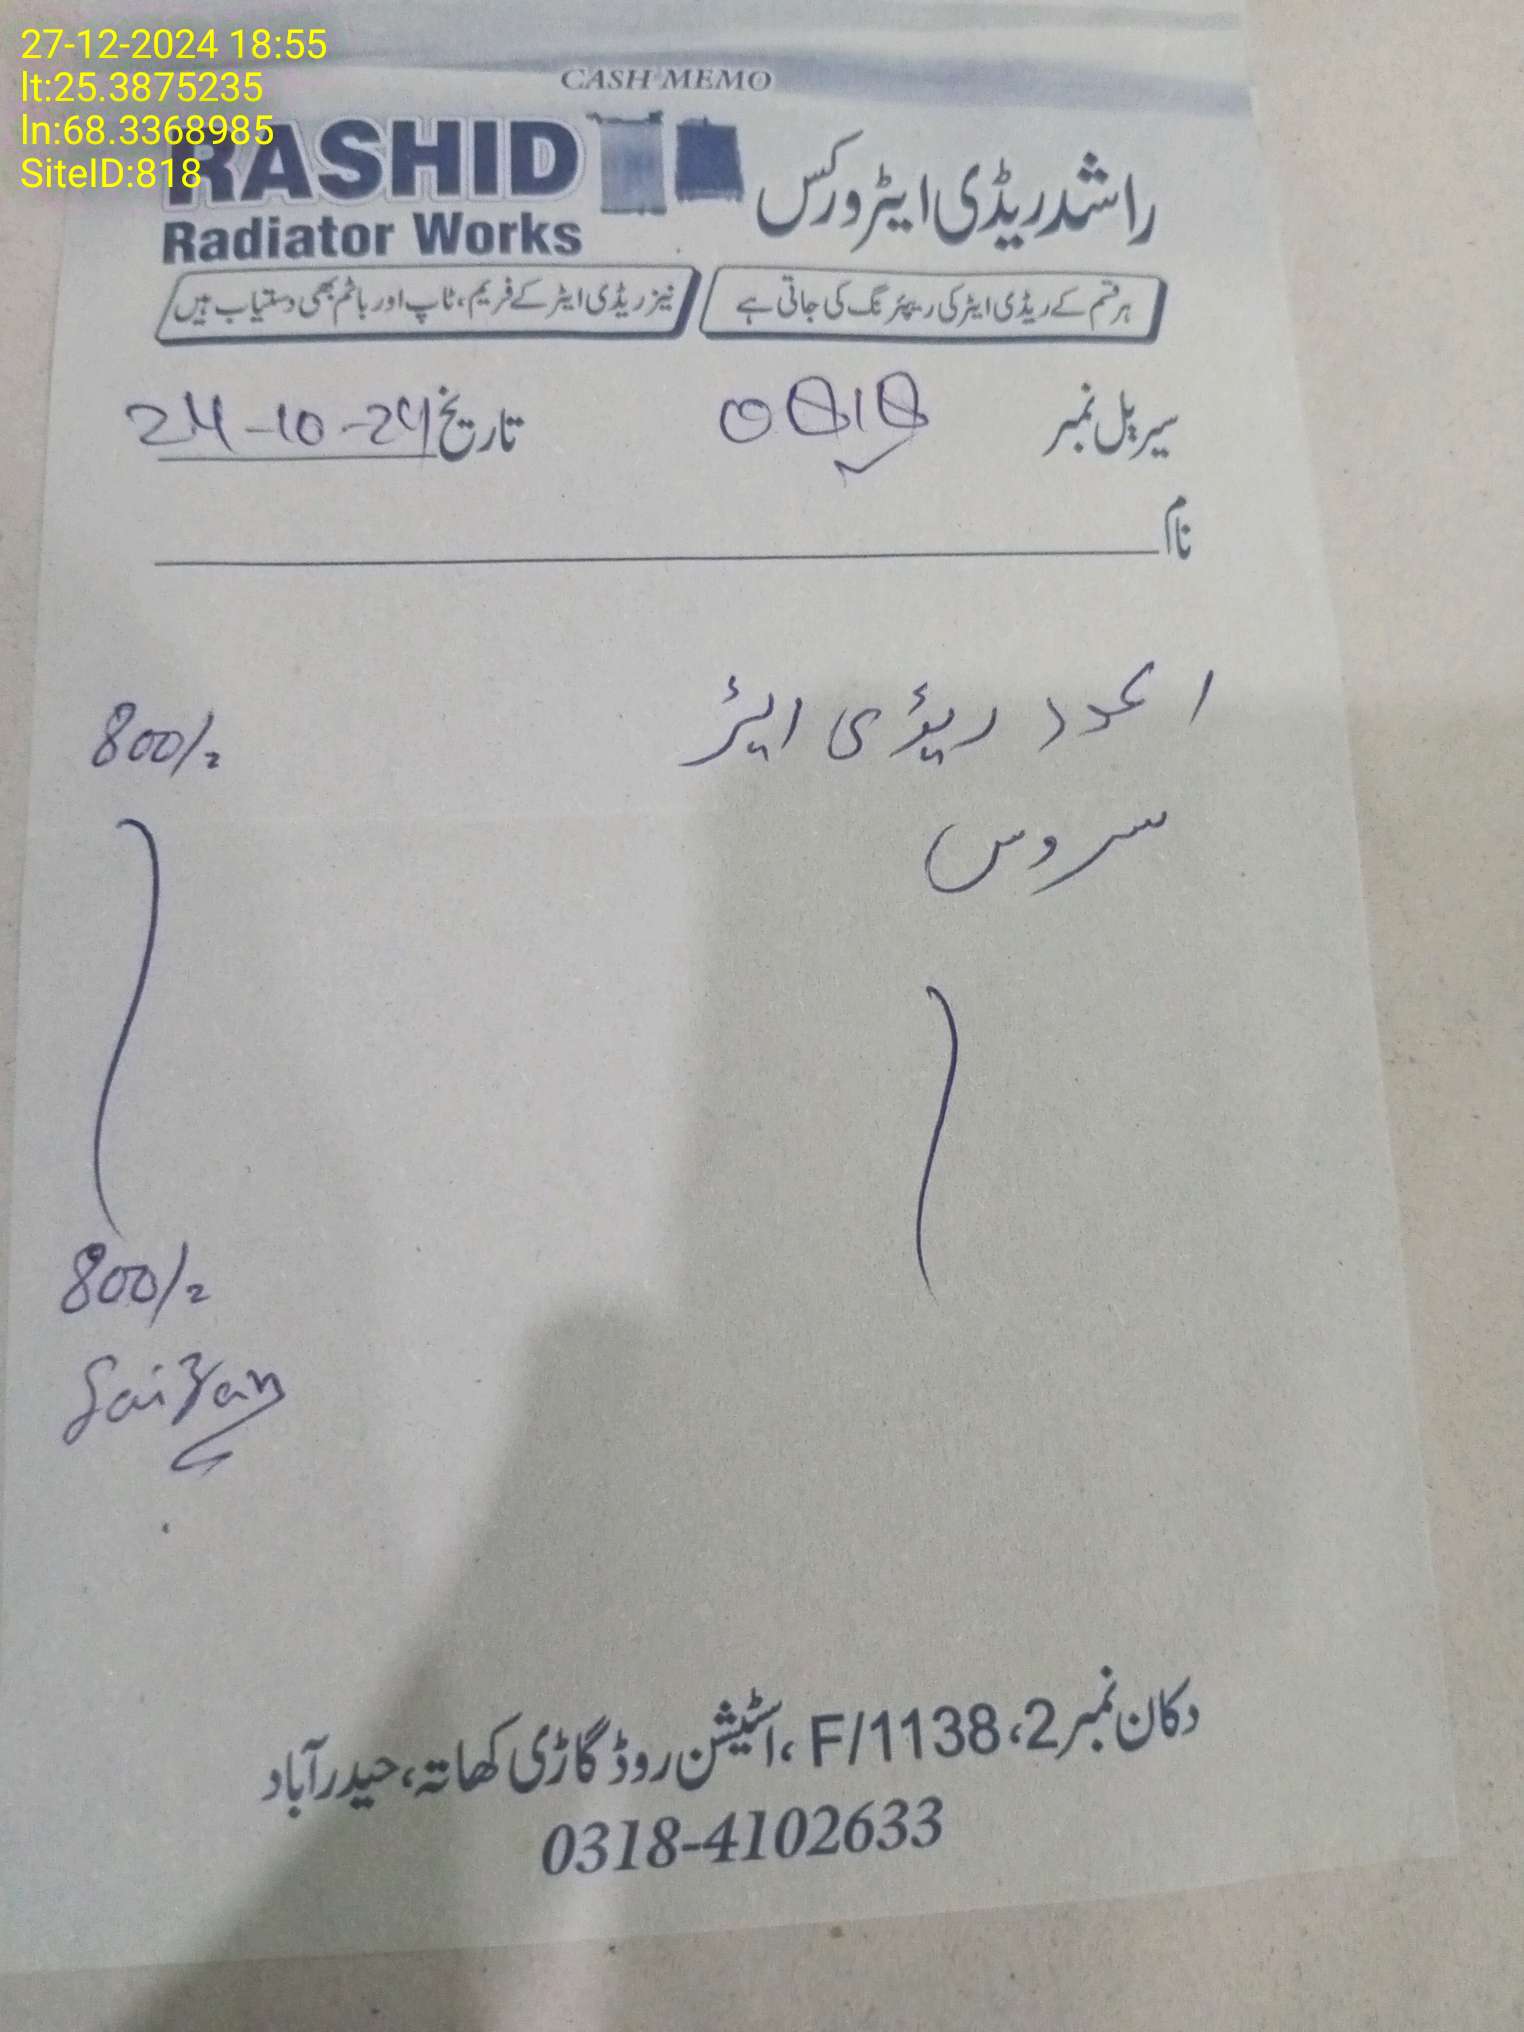 27-12-2024 18:55
lt:25.3875235
ln:68.3368985
SiteID:818
CASH MEMO
RASHID
Radiator Works
راشد ریڈی ایٹر ورکس
ہر قسم کے ریڈی ایٹر کی ریپئرنگ کی جاتی ہے
نیز ریڈی ایٹر کے فریم، ٹاپ اور باٹم بھی دستیاب ہیں
سیریل نمبر
تاریخ 24-10-24
نام
ریڈی ایٹر 800/=
سروس
800/=
Faizan
دکان نمبر 2، F/1138، اسٹیشن روڈ گاڑی کھاتہ، حیدرآباد
0318-4102633